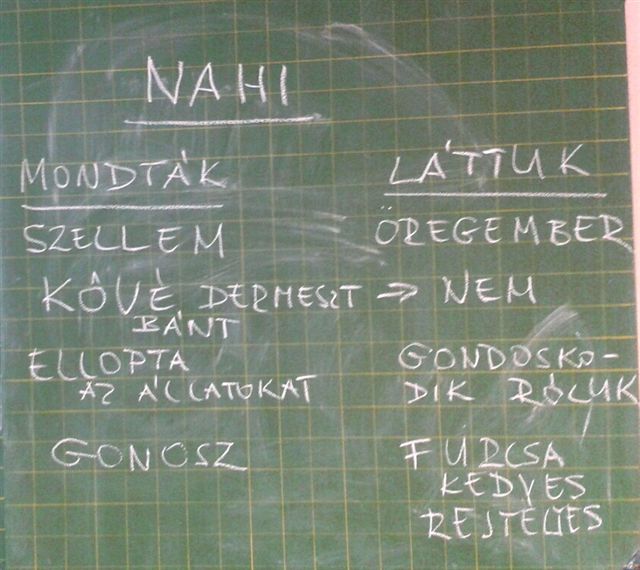 NAHI
MONDTÁK
SZELLEM
KŐVÉ DERMESZT → NEM
BÁNT
ELLOPTA
AZ ÁLLATOKAT
GONOSZ
LÁTTUK
ÖREGEMBER
GONDOSKO-
DIK RÓLUK
FURCSA
KEDVES
REJTELJES